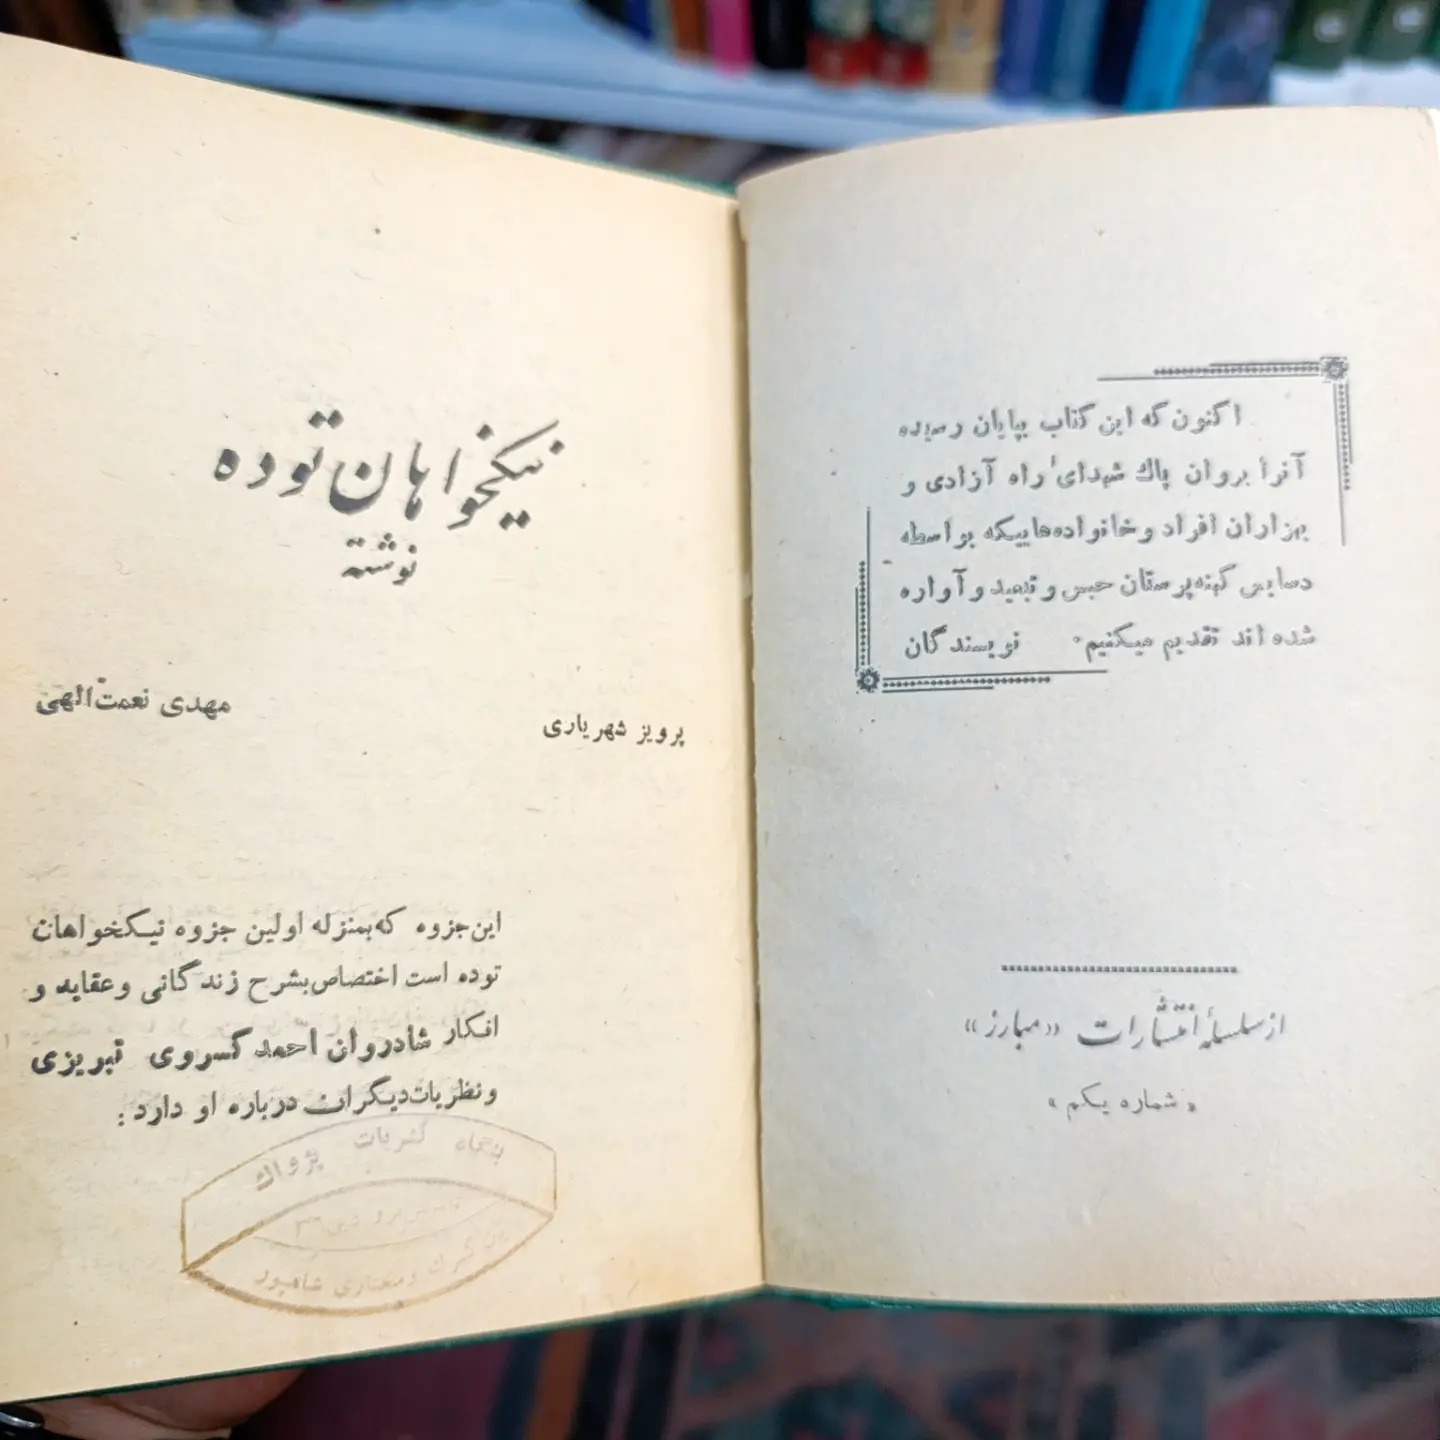 اکنون که این کتاب بپایان رسیده
آنرا بروان پاك شهدای راه آزادی و
بهزاران افراد و خانواده‌هاییکه بواسطه
دسایس کهنه‌پرستان حبس و تبعید و آواره
شده اند تقدیم میکنیم. نویسندگان
از سلسلهٔ انتشارات «مبارز»
«شماره یکم»
نیکخواهان توده
نوشته
پرویز شهریاری
مهدی نعمت‌الهی
این جزوه که بمنزله اولین جزوه نیکخواهان
توده است اختصاص بشرح زندگانی و عقاید و
افکار شادروان احمد کسروی تبریزی
و نظریات دیگران درباره او دارد:
بنگاه نشریات پژواك
گمرك و معتاری شاهپور